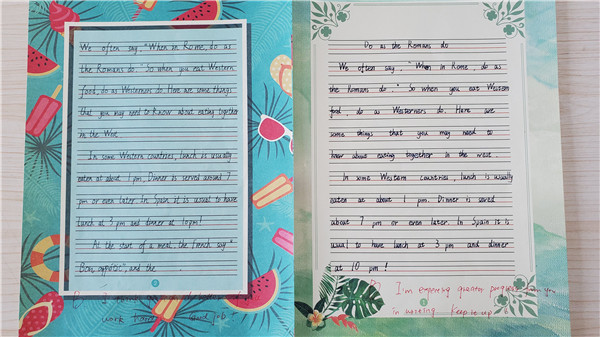 We often say, "When in Rome, do as
the Romans do." So when you eat Western
food, do as Westerners do. Here are some things
that you may need to know about eating together
in the West.
In some Western countries, lunch is usually
eaten at about 1 pm. Dinner is served around 7
pm or even later. In Spain it is usual to have
lunch at 3 pm and dinner at 10 pm!
At the start of a meal, the French say "
Bon appétit", and the
2
work
Good job
Do as the Romans do
We often say, "When in Rome, do as
the Romans do." So when you eat Western
food, do as Westerners do. Here are
some things that you may need to
know about eating together in the west.
In some Western countries, lunch is usually
eaten at about 1 pm. Dinner is served
about 7 pm or even later. In Spain it is
usual to have lunch at 3 pm and dinner
at 10 pm!
I'm expecting greater progress from you
in writing. Keep it up